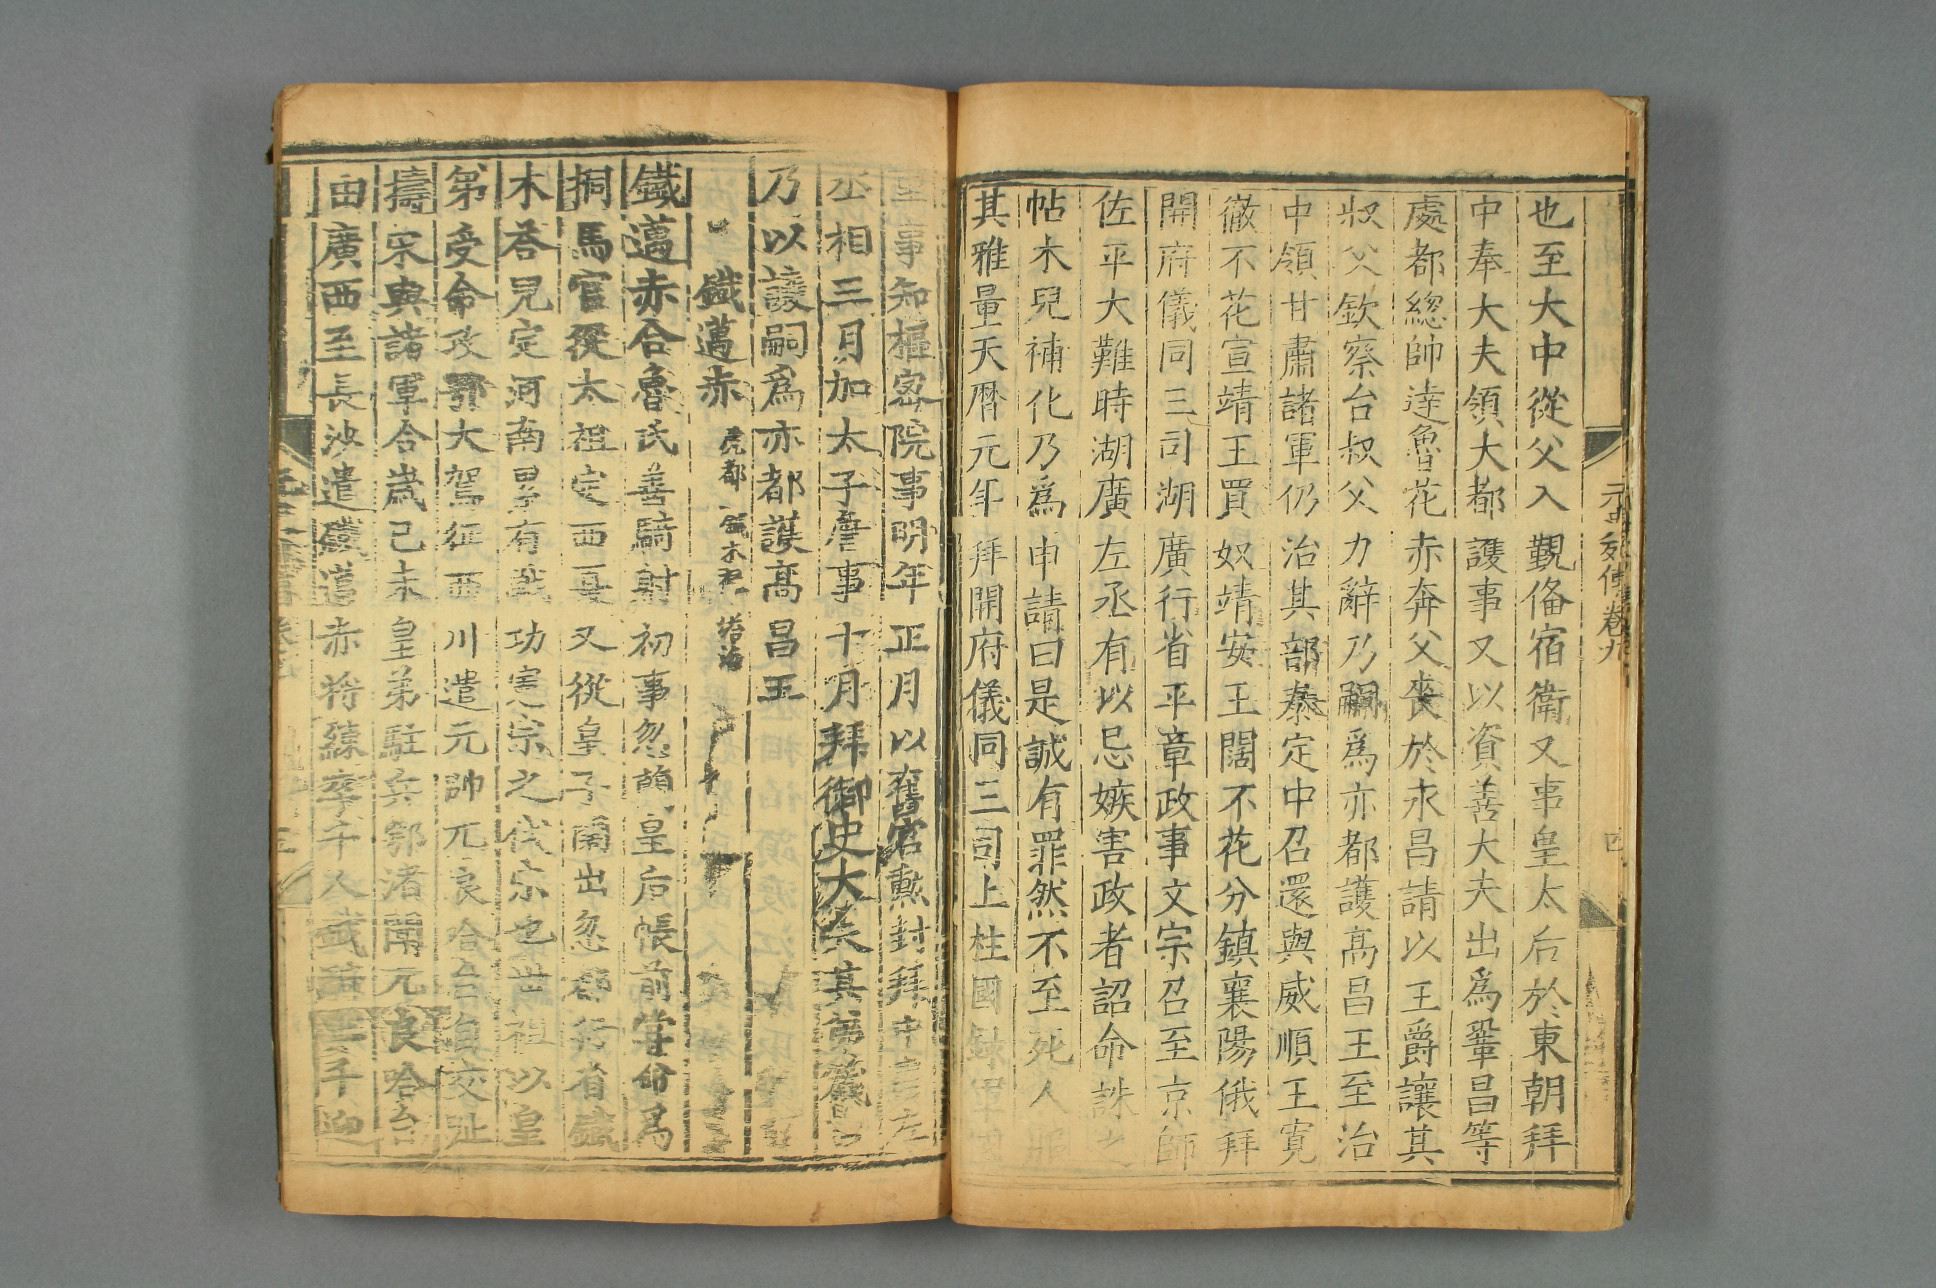 也至大中從父入覲俻宿衛又事皇太后於東朝拜
中奉大夫領大都䕶事又以資善大夫出爲鞏昌等
處都總帥達魯花赤奔父喪於永昌請以王爵讓其
叔父欽察台叔父力辭乃嗣爲亦都護高昌王至治
中領甘肅諸軍仍治其部泰定中召還與威順王寛
徹不花宣靖王買奴靖安王闊不花分鎮襄陽俄拜
開府儀同三司湖廣行省平章政事文宗召至京師
佐平大難時湖廣左丞有以忌嫉害政者詔命誅之
帖木兒補化乃爲申請曰是誠有罪然不至死人
其雅量天曆元年拜開府儀同三司上柱國録軍
事知樞密院事明年正月以舊官勲封拜中書左
丞相三月加太子詹事十月拜御史大夫其弟籛吉
乃以讓嗣爲亦都護高昌王
鐵邁赤 虎都鐵木祿 塔海
鐵邁赤合魯氏善騎射初事忽蘭皇后帳前嘗命爲
挏馬官從太祖定西夏又從皇子闊出忽都行省鐵
木荅兒定河南累有戰功憲宗之伐宋也世祖以皇
第受命攻鄂大駕征西川遣元帥兀良哈台自交趾
擣宋與諸軍合歲己未皇弟駐兵鄂渚聞元良哈台
由廣西至長沙遣鐵邁赤將練卒千人鐵騎三千迎
元史列傳卷九
四